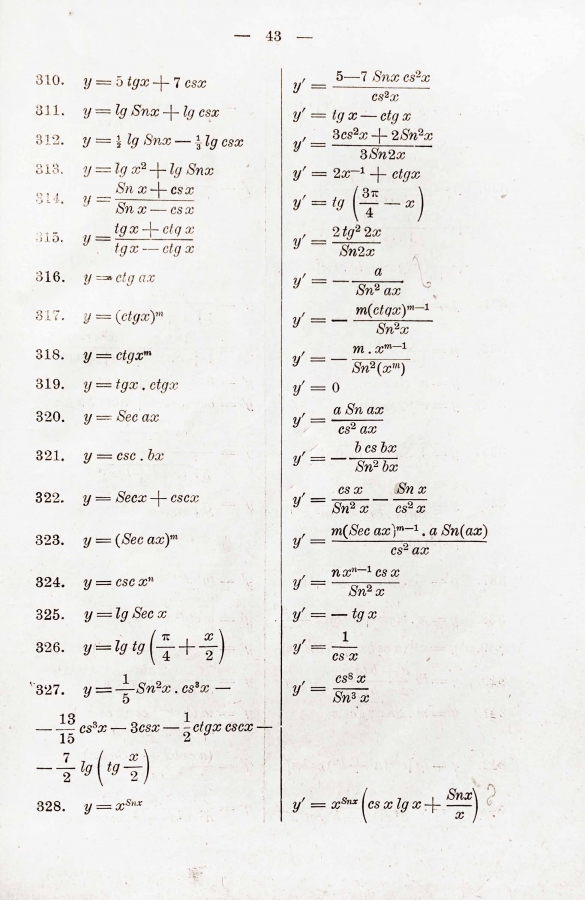 — 43 —
310. y = 5 tgx + 7 csx y' = 5—7 Snx cs²x / cs²x
311. y = lg Snx + lg csx y' = tg x — ctg x
312. y = ½ lg Snx — ⅓ lg csx y' = 3cs²x + 2Sn²x / 3Sn2x
313. y = lg x² + lg Snx y' = 2x⁻¹ + ctgx
314. y = Sn x + csx / Sn x — csx y' = tg (3π/4 — x)
315. y = tgx + ctg x / tgx — ctg x y' = 2 tg² 2x / Sn2x
316. y = ctg ax y' = — a / Sn² ax
317. y = (ctgx)ᵐ y' = — m(ctgx)ᵐ⁻¹ / Sn²x
318. y = ctgxᵐ y' = — m . xᵐ⁻¹ / Sn²(xᵐ)
319. y = tgx . ctgx y' = 0
320. y = Sec ax y' = a Sn ax / cs² ax
321. y = csc . bx y' = — b cs bx / Sn² bx
322. y = Secx + cscx y' = cs x / Sn² x — Sn x / cs² x
323. y = (Sec ax)ᵐ y' = m(Sec ax)ᵐ⁻¹ . a Sn(ax) / cs² ax
324. y = csc xⁿ y' = n xⁿ⁻¹ cs x / Sn² x
325. y = lg Sec x y' = — tg x
326. y = lg tg (π/4 + x/2) y' = 1 / cs x
327. y = 1/5 Sn²x . cs³x — y' = cs⁸ x / Sn³ x
— 13/15 cs³x — 3csx — 1/2 ctgx cscx —
— 7/2 lg (tg x/2)
328. y = xˢⁿˣ y' = xˢⁿˣ (cs x lg x + Snx/x) ?